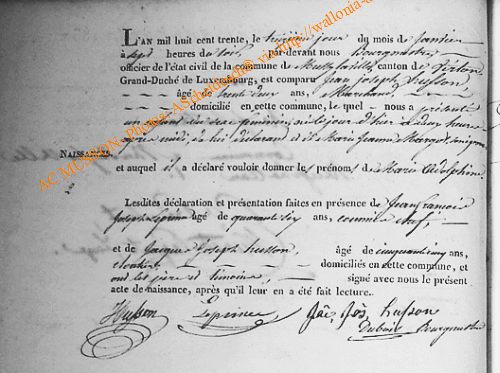 L'AN mil huit cent trente, le treizième jour du mois de janvier
à sept heures du soir, par-devant nous Bourgmestre
officier de l'état civil de la commune de Mussy la ville, canton de Virton,
Grand-Duché de Luxembourg, est comparu Jean Joseph Husson
âgé de trente deux ans, Marchand
domicilié en cette commune, le quel nous a présenté
un enfant du sexe féminin, né le jour d'hier à heures
après midi, de lui déclarant et de Marie Jeanne
NAISSANCE.
et auquel il a déclaré vouloir donner le prénom de Marie Adolphine
Lesdites déclaration et présentation faites en présence de Jean françois
Joseph Leprince âgé de quarante six ans,
et de Jacques Joseph husson, âgé de cinquante cinq ans,
domiciliés en cette commune, et
ont les père et témoins, signé avec nous le présent
acte de naissance, après qu'il leur en a été fait lecture.
Husson Leprince Jâc, Jôs, husson
Dubois Bourgmestre
AC MUSSON - Photos A